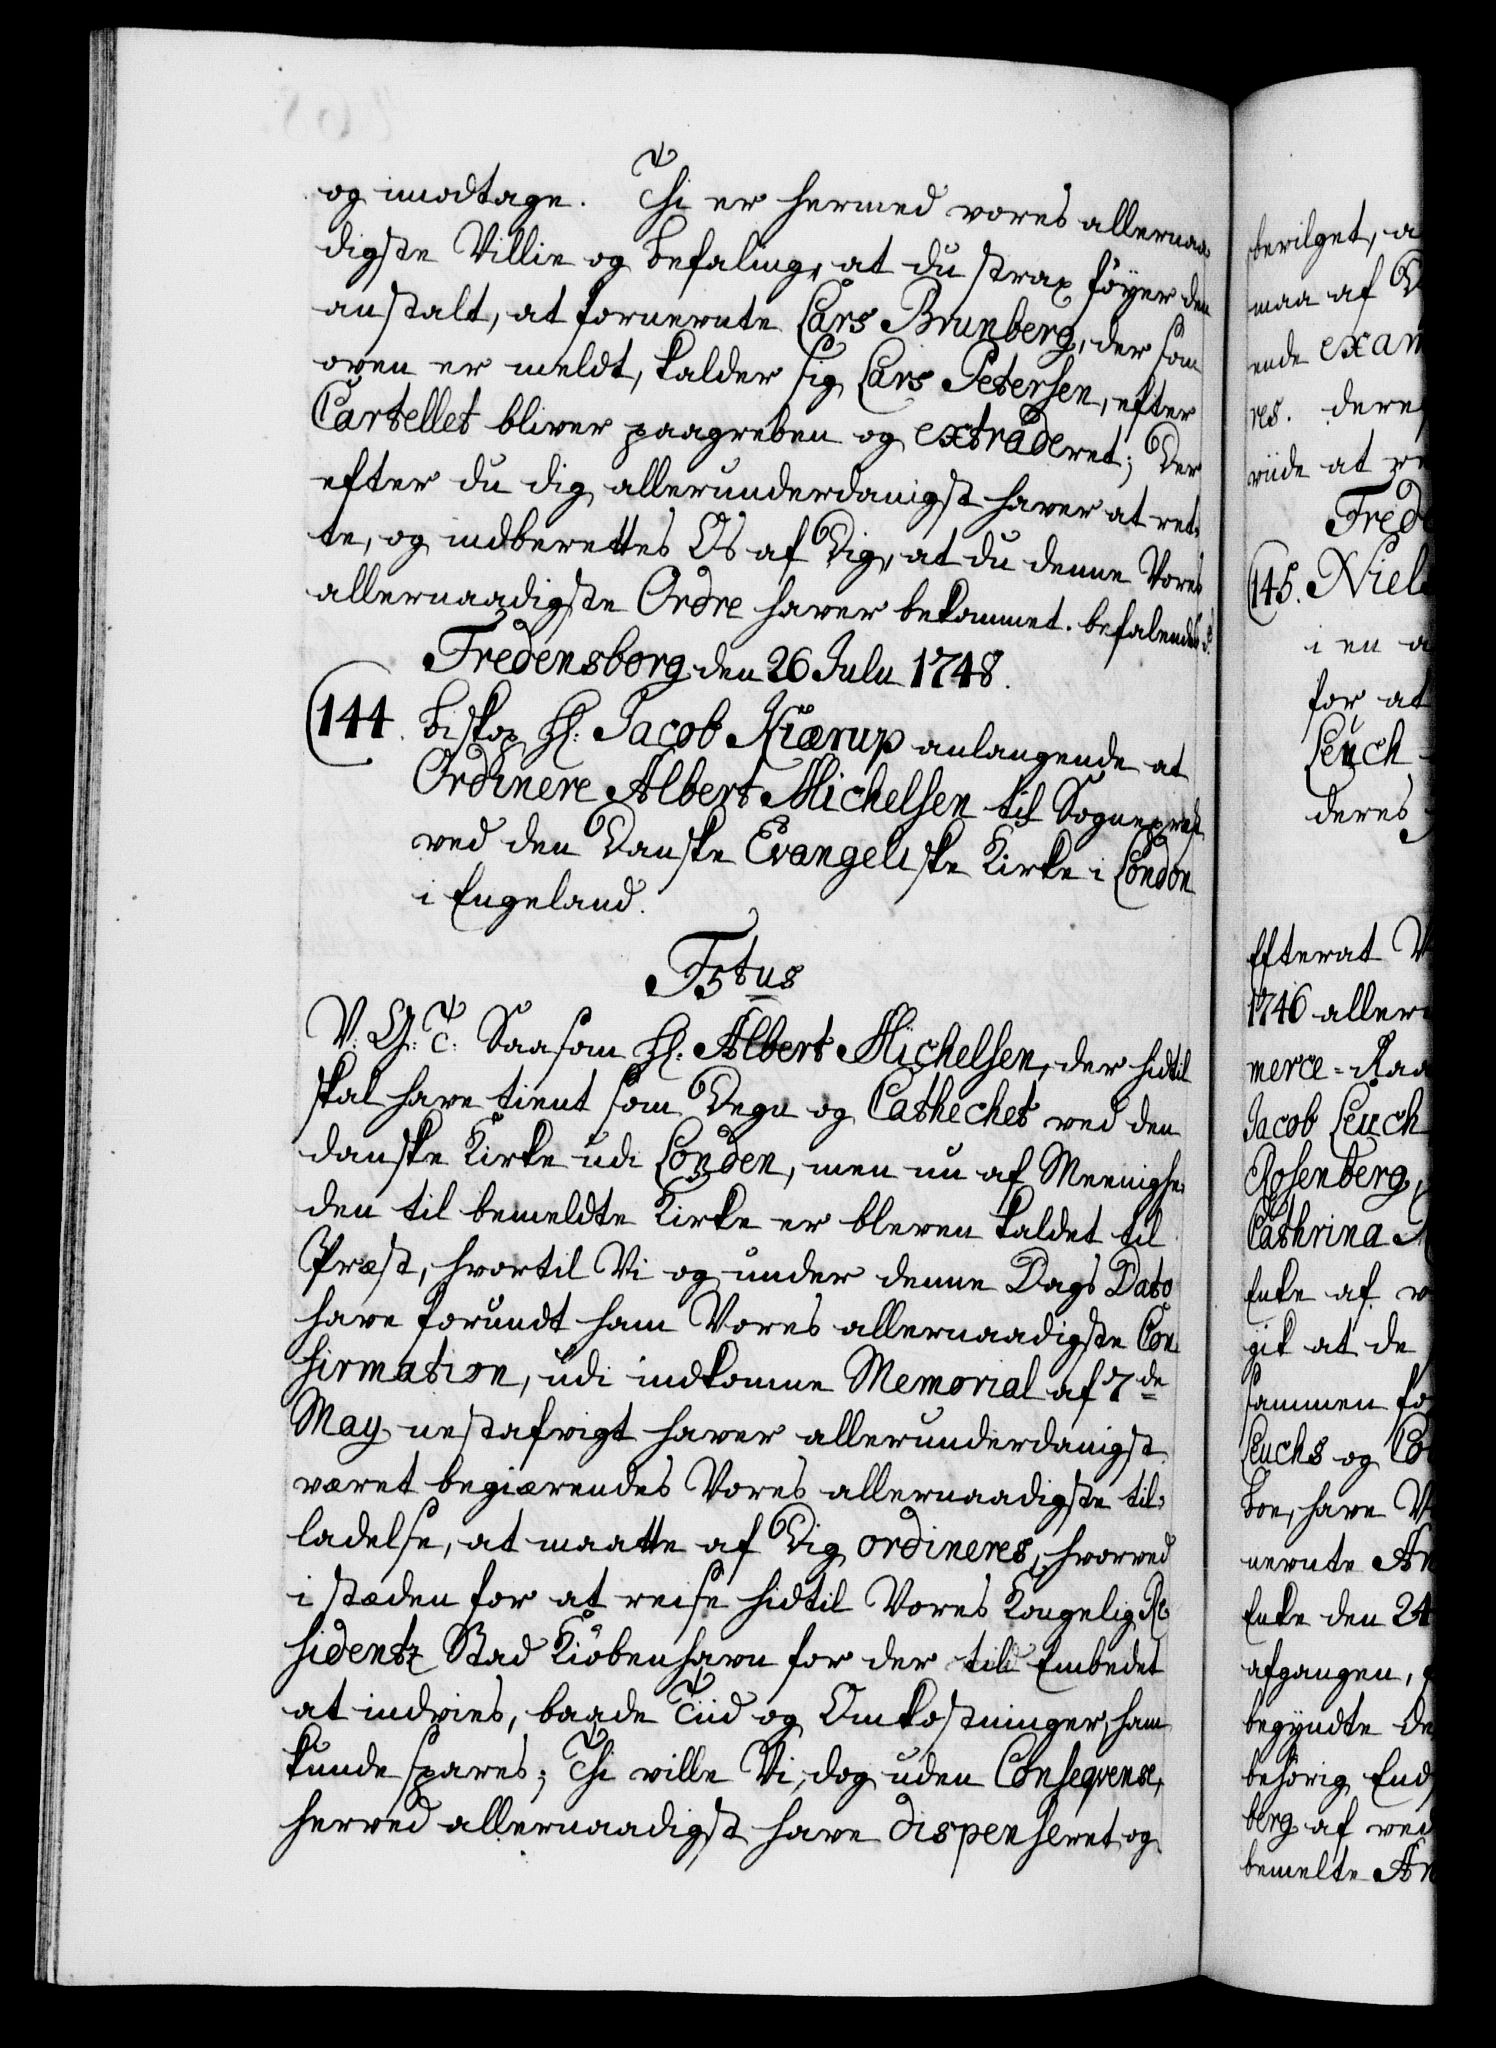 og imodtage. Thi er hermed vores allernaa-
digste Villie og befaling, at du strax föyer den
anstalt, at fornevnte Lars Brunberg, der som
oven er meldt, kalder sig Lars Petersen, efter
Cartellet bliver paagreben og extraderet; Der
efter du dig allerunderdanigst haver at ret-
te, og indberettes Os af Dig, at du denne Vores
allernaadigste Ordre haver bekommet. befalendes
Fredensborg den 26 Juln 1748.
144. Biskop H: Jacob Kiærup anlangende at
Ordinere Albert Michelsen til Sognepræst
ved den Danske Evangeliske Kirke i London
i Engeland.
F5tus
V. G. T: Saasom H: Albert Michelsen, der hidtil
skal have tient som Degn og Cathechet ved den
danske Kirke udi London, men nu af Meenighe-
den til bemeldte Kirke er bleven kaldet til
Præst, hvortil Vi og under denne Dags Dato
have forundt ham Vores allernaadigste Con-
firmation, udi indkomne Memorial af 7de
May nestafvigt haver allerunderdanigst
været begiærendes Vores allernaadigste til-
ladelse, at maatte af Dig ordineres, hvorved
i stæden for at reise hidtil Vores Kongelig Re-
sidentz Stad Kiöbenhavn for der til Embedet
at indvies, baade Tiid og Omkostninger, ham
kunde spares; Thi ville Vi, dog uden Conseqvense,
herved allernaadigst have dispenseret og
bevilget, a
maa af D
ende exam
res. dere
viide at re
Fred
145. Niel
i en a
for at
Leuch
deres
Efterat V
1746 aller
merce-Raa
Jacob Leuch
Rosenberg,
Cathrina
Enke af v
gik at de
sammen fo
Leuchs og Co
boe, have V
nevnte An
Enke den 24
afgangen,
begyndte de
behörig End
berg af ved
bemelte An